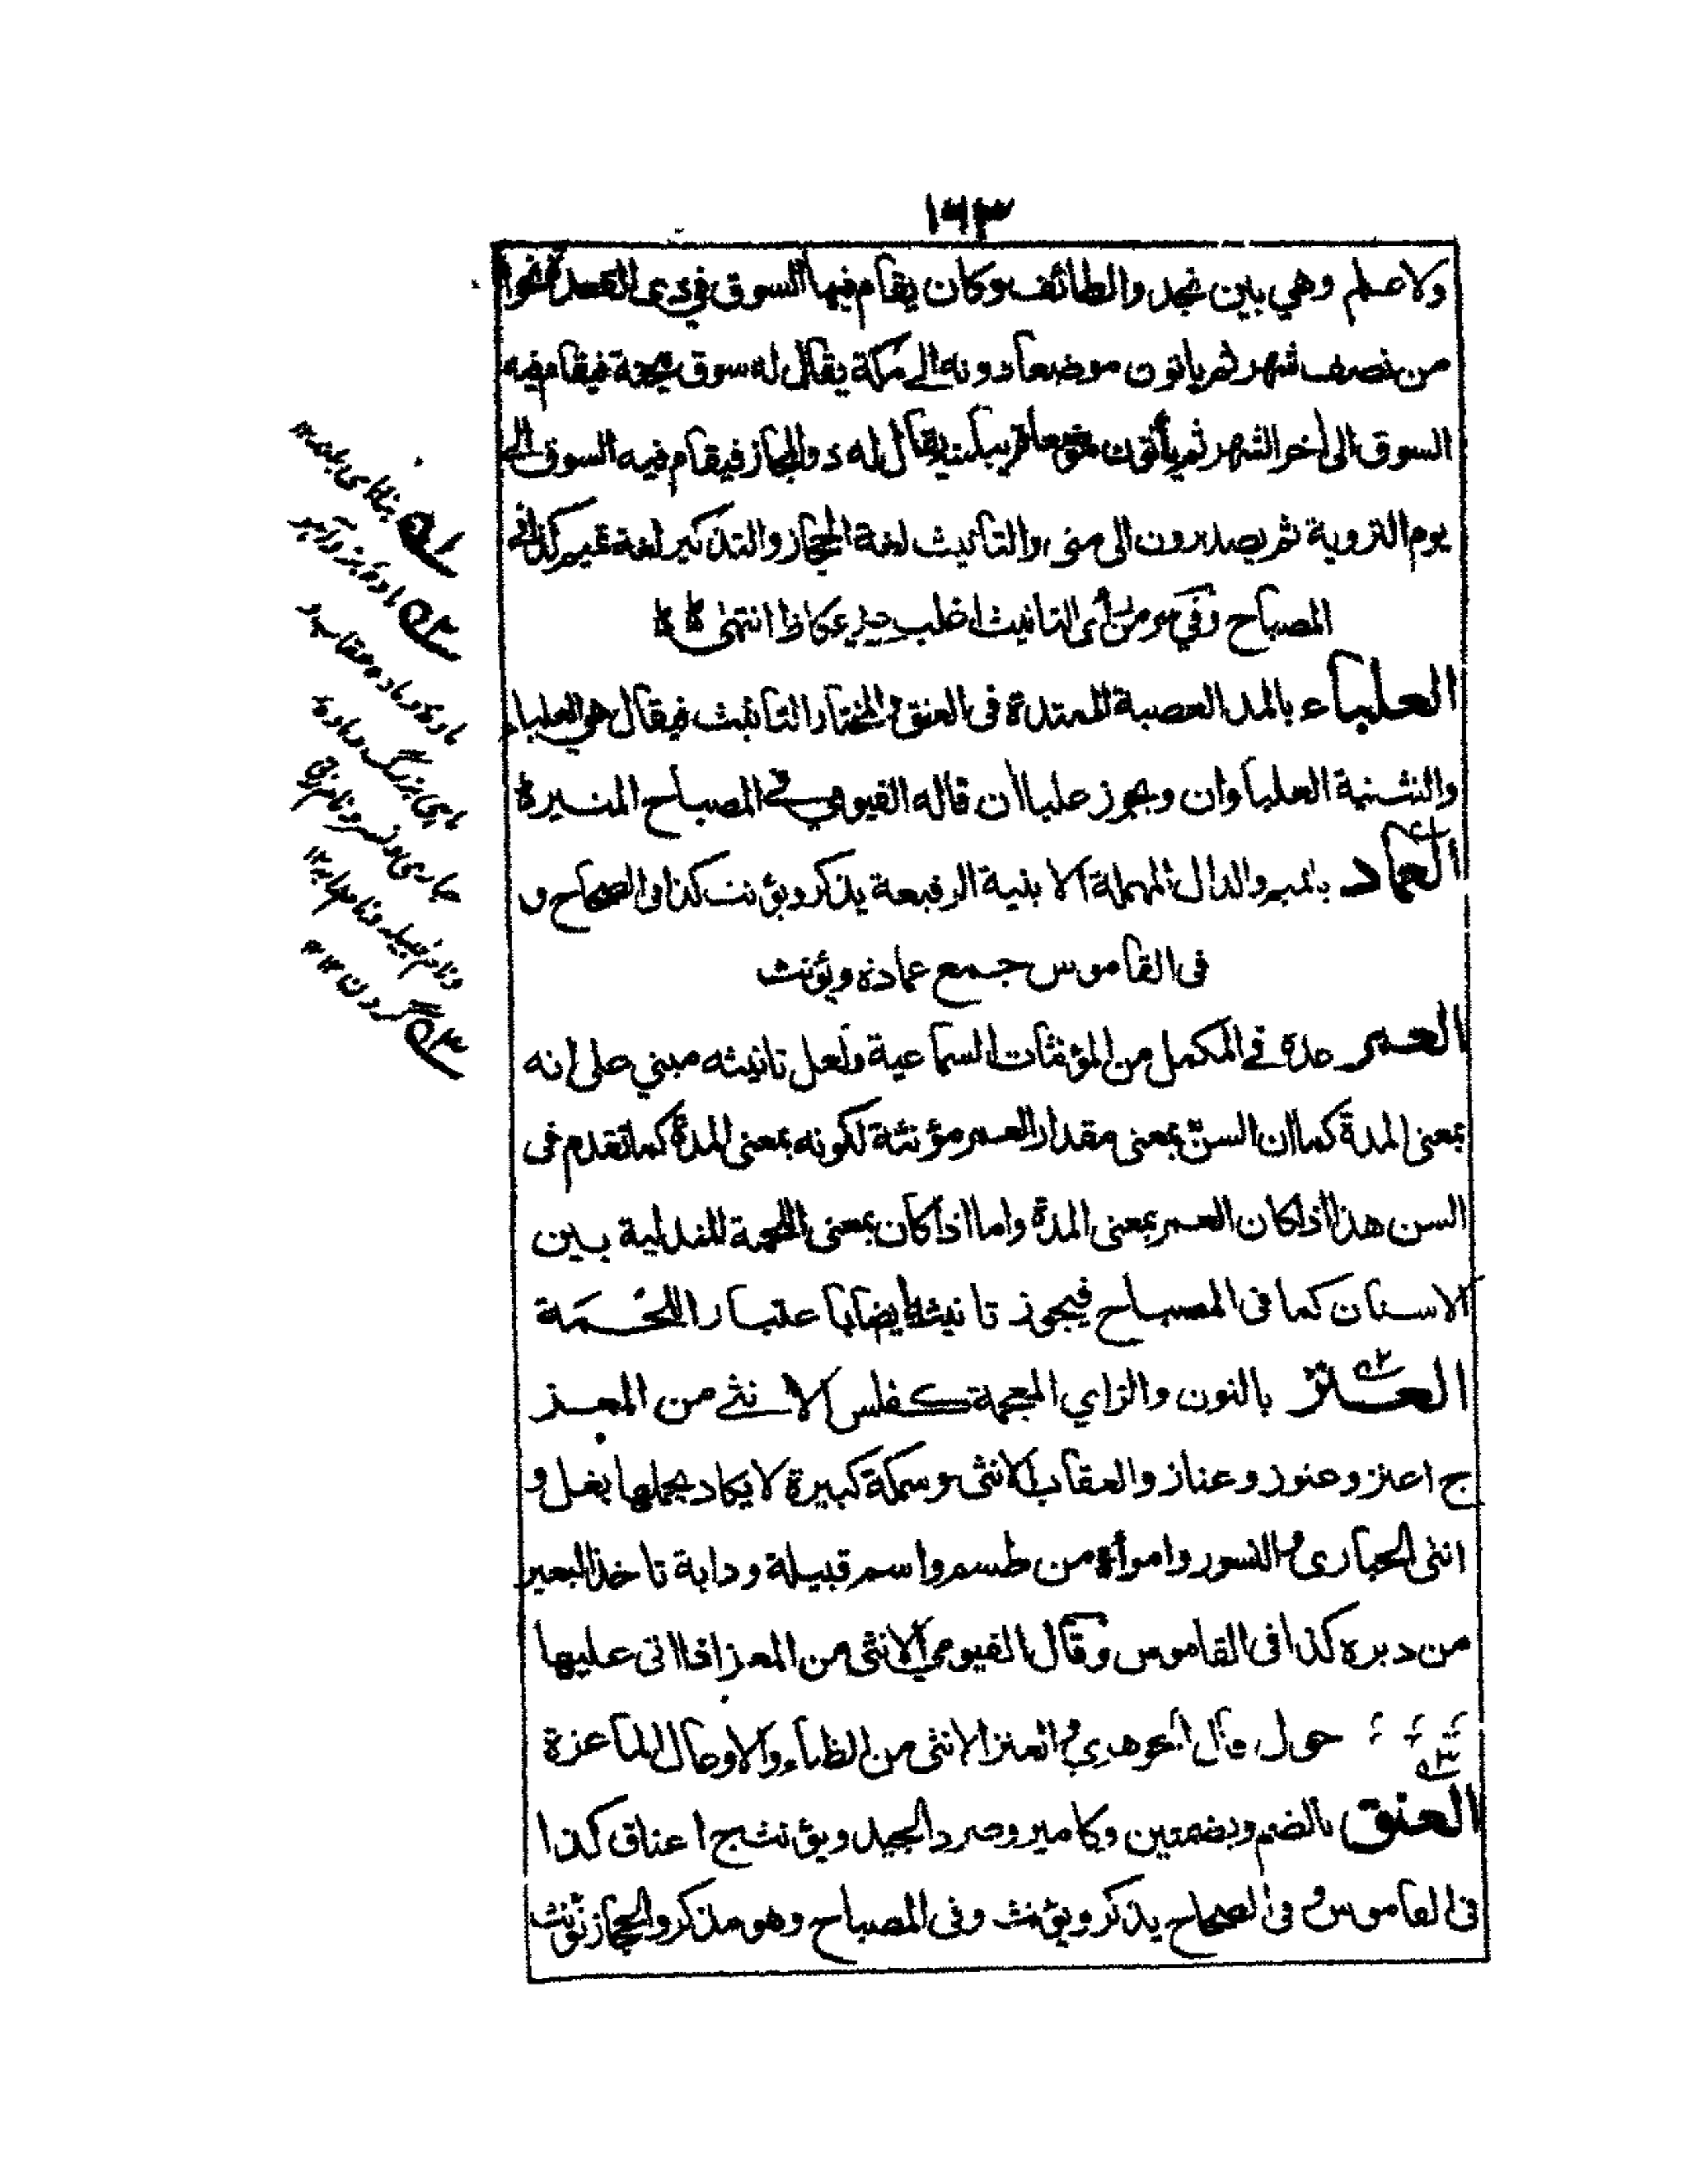 ١٦٣
ولاعلم وهي بين نجد والطائف وكان يقام فيها السوق في ذي القعدة نحوا
من نصف شهر ثم يأتون موضعا دونه الى مكة يقال له سوق مجنة فيقام فيه
السوق الى اخر الشهر ثم يأتون موضعا قريبا منه يقال له ذو المجاز فيقام فيه السوق الى
يوم التروية ثم يصدرون الى منى والتانيث لغة الحجاز والتذكير لغة تميم كذا في
المصباح وفي رأى التانيث اغلب عكاظ انتهى
العلباء بالمد العصبة الممتدة فى العنق والمختار التانيث فيقال هي العلباء
والتثنية العلباوان ويجوز علباان قاله الفيومي في المصباح المنير
العماد بالميم والدال المهملة الابنية الرفيعة يذكر ويؤنث كذا في الصحاح و
فى القاموس جمع عمادة ويؤنث
العمر عده في المكمل من المؤنثات السماعية ولعل تانيثه مبني على انه
بمعنى المدة كما ان السن بمعنى مقدار العمر مؤنثة لكونه بمعنى المدة كما تقدم فى
السن هذا اذا كان العمر بمعنى المدة واما اذا كان بمعنى اللحمة المتدلية بين
الاسنان كما فى المصباح فيجوز تانيثه ايضا باعتبار اللحمة
العنز بالنون والزاي المعجمة كفلس الانثى من المعز
ج اعنز وعنوز وعناز والعقاب الانثى وسمكة كبيرة لا يكاد يحملها بغل و
انثى الحبارى والنسور وامرأة من طسم واسم قبيلة ودابة تاخذ البعير
من دبره كذا فى القاموس وقال الفيومي الانثى من المعز اذا اتى عليها
حول قال الجوهري والعنز الانثى من الظباء والاوعال الماعزة
العنق بالضم وبضمتين وكامير وصرد الجيد ويؤنث ج اعناق كذا
فى القاموس وفى الصحاح يذكر ويؤنث وفى المصباح وهو مذكر والحجاز تؤنث
بناهاى بلند ١٢
مادهٔ بز وآهو
ماهى بزرگ وماده
گردن ١٢